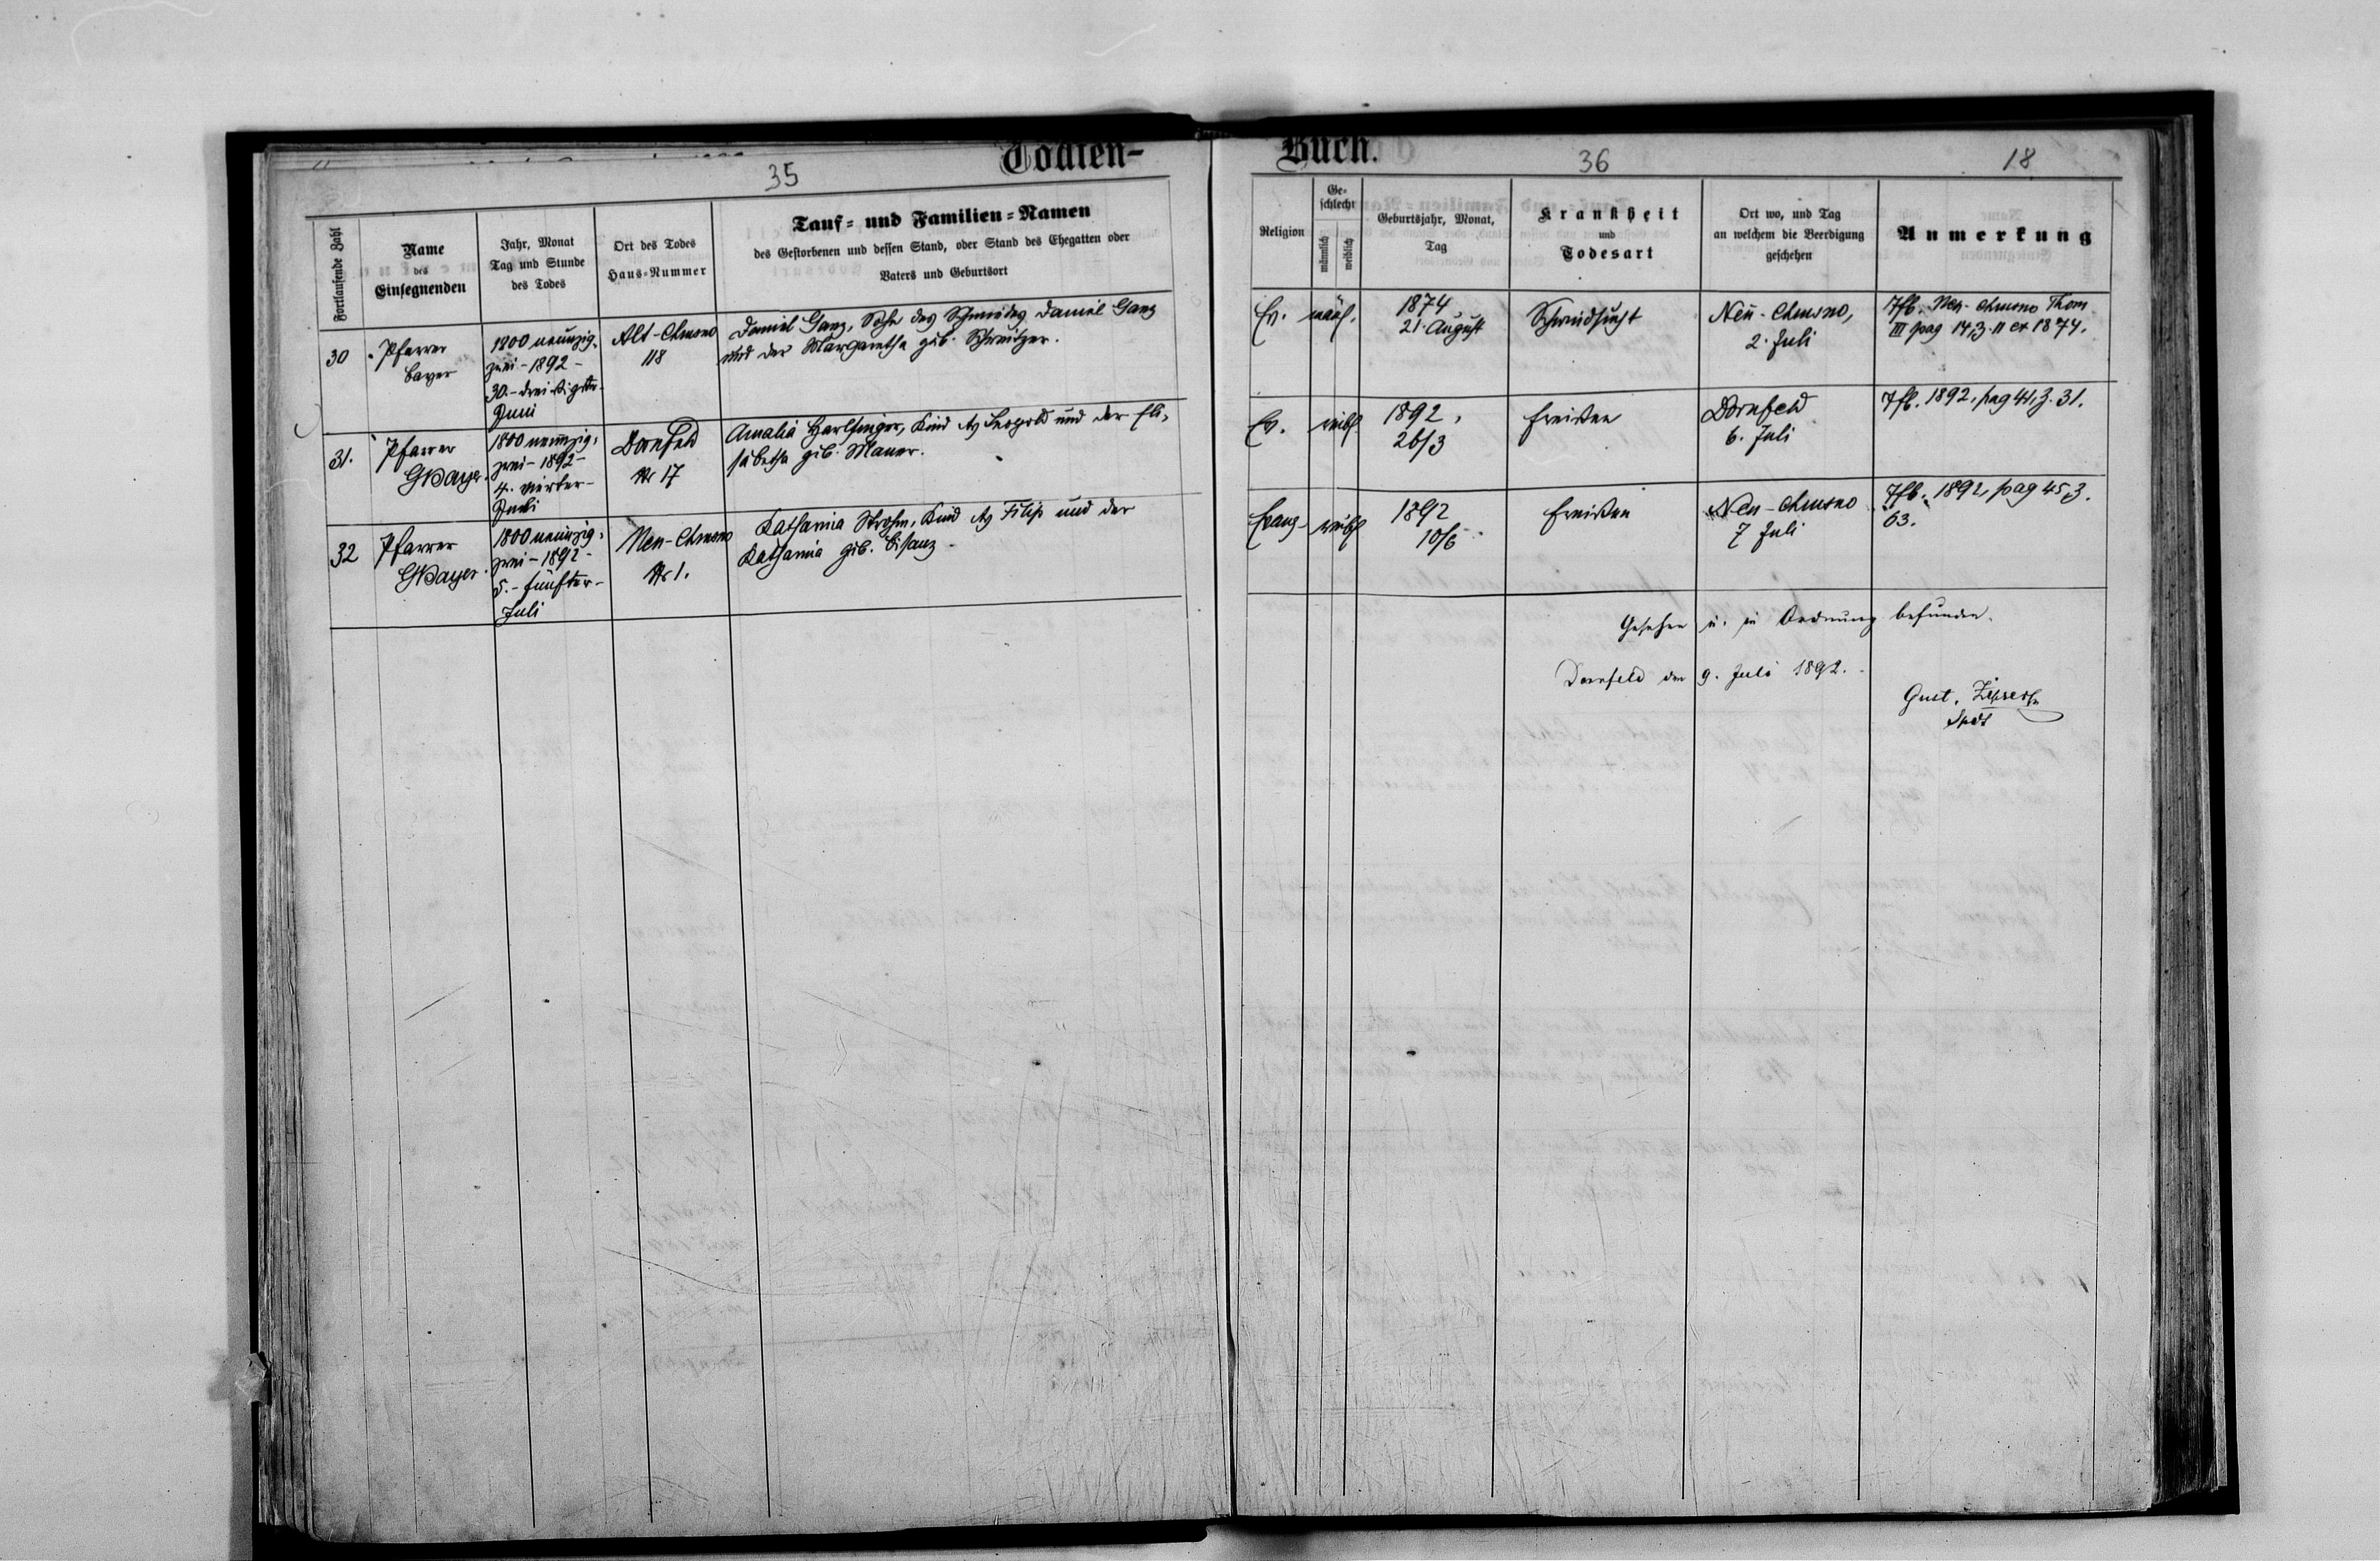 Todten-
Buch.
35
36
18
Fortlaufende Zahl
Name
des
Einsegnenden
Jahr, Monat
Tag und Stunde
des Todes
Ort des Todes
Haus-Nummer
Tauf- und Familien-Namen
des Gestorbenen und dessen Stand, oder Stand des Ehegatten oder
Vaters und Geburtsort
Religion
Ge-
schlecht
männlich
weiblich
Geburtsjahr, Monat,
Tag
Krankheit
und
Todesart
Ort wo, und Tag
an welchem die Beerdigung
geschehen
Anmerkung
30
Pfarrer
Bayer
1800 neunzig-
zwei - 1892 -
30. - dreißigster -
Juni
Alt-Chmsno
118
Daniel Ganz, Sohn des Schmides Daniel Ganz
und der Margaretha geb. Schweitzer.
Ev.
männl.
1874
21. August
Schwindsucht
Neu-Chmsno,
2. Juli
Tfb. Neu-Chmsno Thom
III pag 14, Z. 11 ex 1874.
31.
Pfarrer
GBayer.
1800 neunzig-
zwei - 1892 -
4. vierter -
Juli
Dornfeld
Nr 17
Amalia Harlfinger, Kind des Leopold und der Eli-
sabetha geb. Mauer.
Ev.
weibl
1892.
26/3
Freisen
Dornfeld
6. Juli
Tfb. 1892, pag 41, Z. 31.
32
Pfarrer
GBayer.
1800 neunzig-
zwei - 1892 -
5. - fünfter -
Juli
Neu-Chmsno
Nr 1.
Katharina Strohm, Kind des Filip und der
Katharina geb. Bisanz
Evang.
weibl
1892
10/6
Freisen
Neu-Chmsno
7 Juli
Tfb. 1892, pag 45 Z.
63.
Gesehen u. in Ordnung befunden.
Dornfeld den 9. Juli 1892.
Gust.